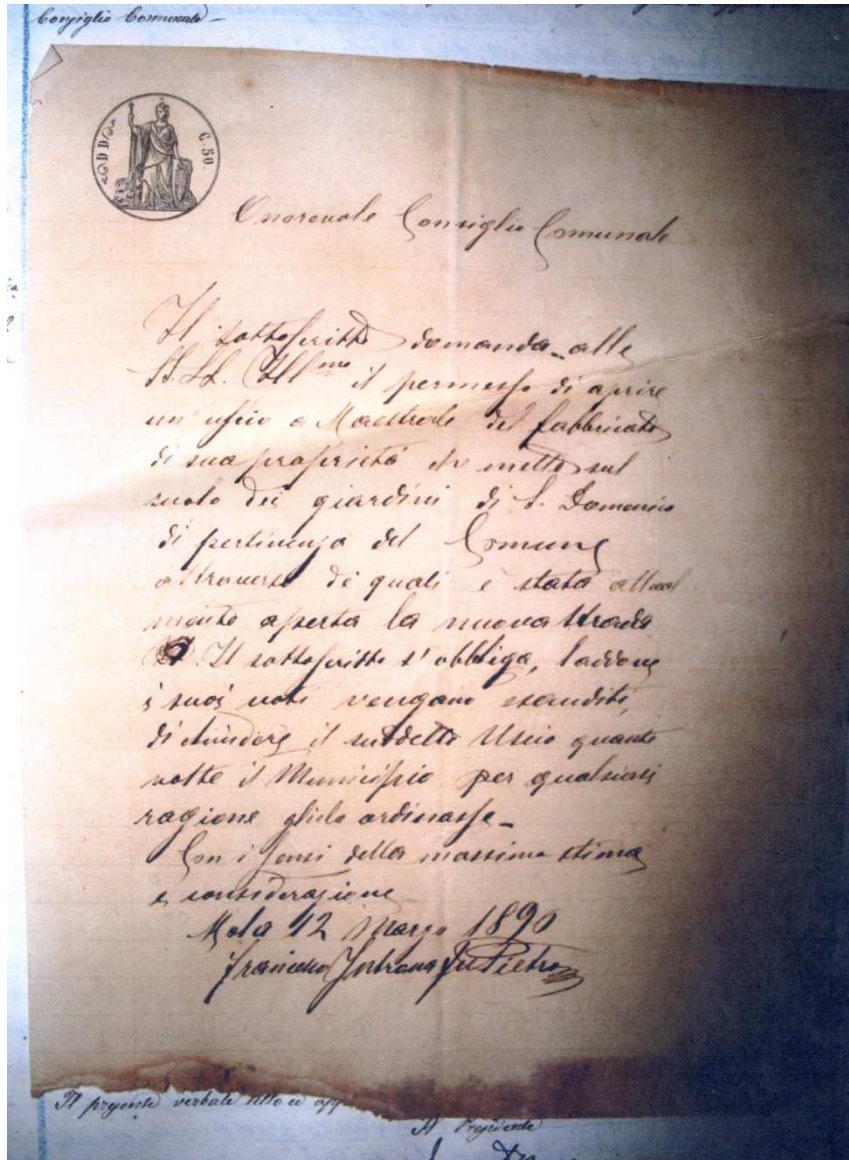 Consiglio Comunale –
C. 50.
Onorevole Consiglio Comunale
Il sottoscritto domanda alle
SS. LL. Ill.me il permesso di aprire
un' uscio a Maestrale del fabbricato
di sua proprietà che mette sul
suolo dei giardini di S. Domenico
di pertinenza del Comune
attraverso de' quali è stata attual
mente aperta la nuova strada
Il sottoscritto s'obbliga, laddove
i suoi voti vengano esauditi,
di chiudere il suddetto Uscio quante
volte il Municipio per qualsiasi
ragione glielo ordinasse –
Con i sensi della massima stima
e considerazione
Mola 12 Marzo 1890
Francesco fu Pietro
Il presente verbale letto ed
Il Presidente